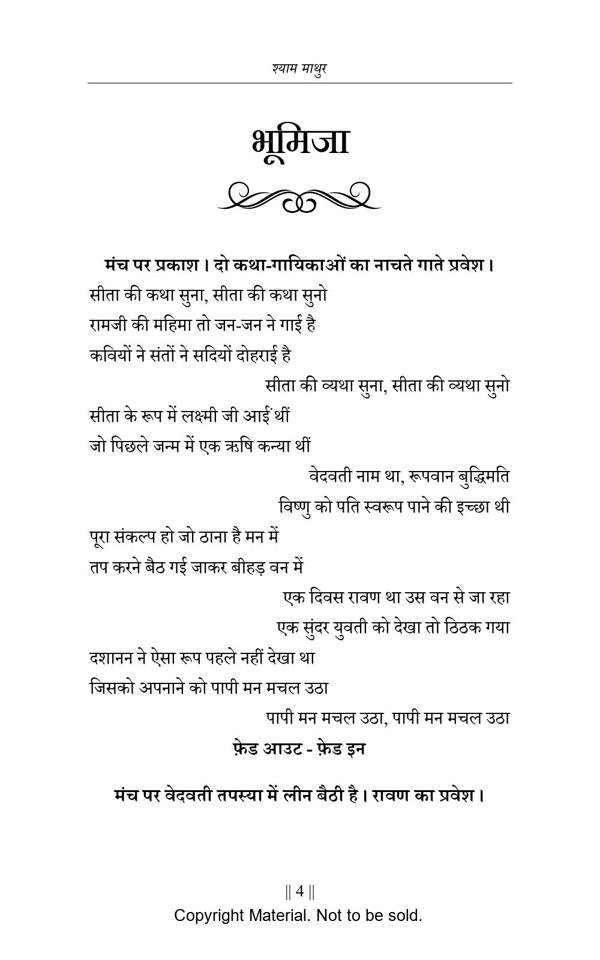 श्याम माथुर
भूमिजा
मंच पर प्रकाश। दो कथा-गायिकाओं का नाचते गाते प्रवेश।
सीता की कथा सुना, सीता की कथा सुनो
रामजी की महिमा तो जन-जन ने गाई है
कवियों ने संतों ने सदियों दोहराई है
सीता की व्यथा सुना, सीता की व्यथा सुनो
सीता के रूप में लक्ष्मी जी आईं थीं
जो पिछले जन्म में एक ऋषि कन्या थीं
वेदवती नाम था, रूपवान बुद्धिमति
विष्णु को पति स्वरूप पाने की इच्छा थी
पूरा संकल्प हो जो ठाना है मन में
तप करने बैठ गई जाकर बीहड़ वन में
एक दिवस रावण था उस वन से जा रहा
एक सुंदर युवती को देखा तो ठिठक गया
दशानन ने ऐसा रूप पहले नहीं देखा था
जिसको अपनाने को पापी मन मचल उठा
पापी मन मचल उठा, पापी मन मचल उठा
फ़ेड आउट - फ़ेड इन
मंच पर वेदवती तपस्या में लीन बैठी है। रावण का प्रवेश।
|| 4 ||
Copyright Material. Not to be sold.